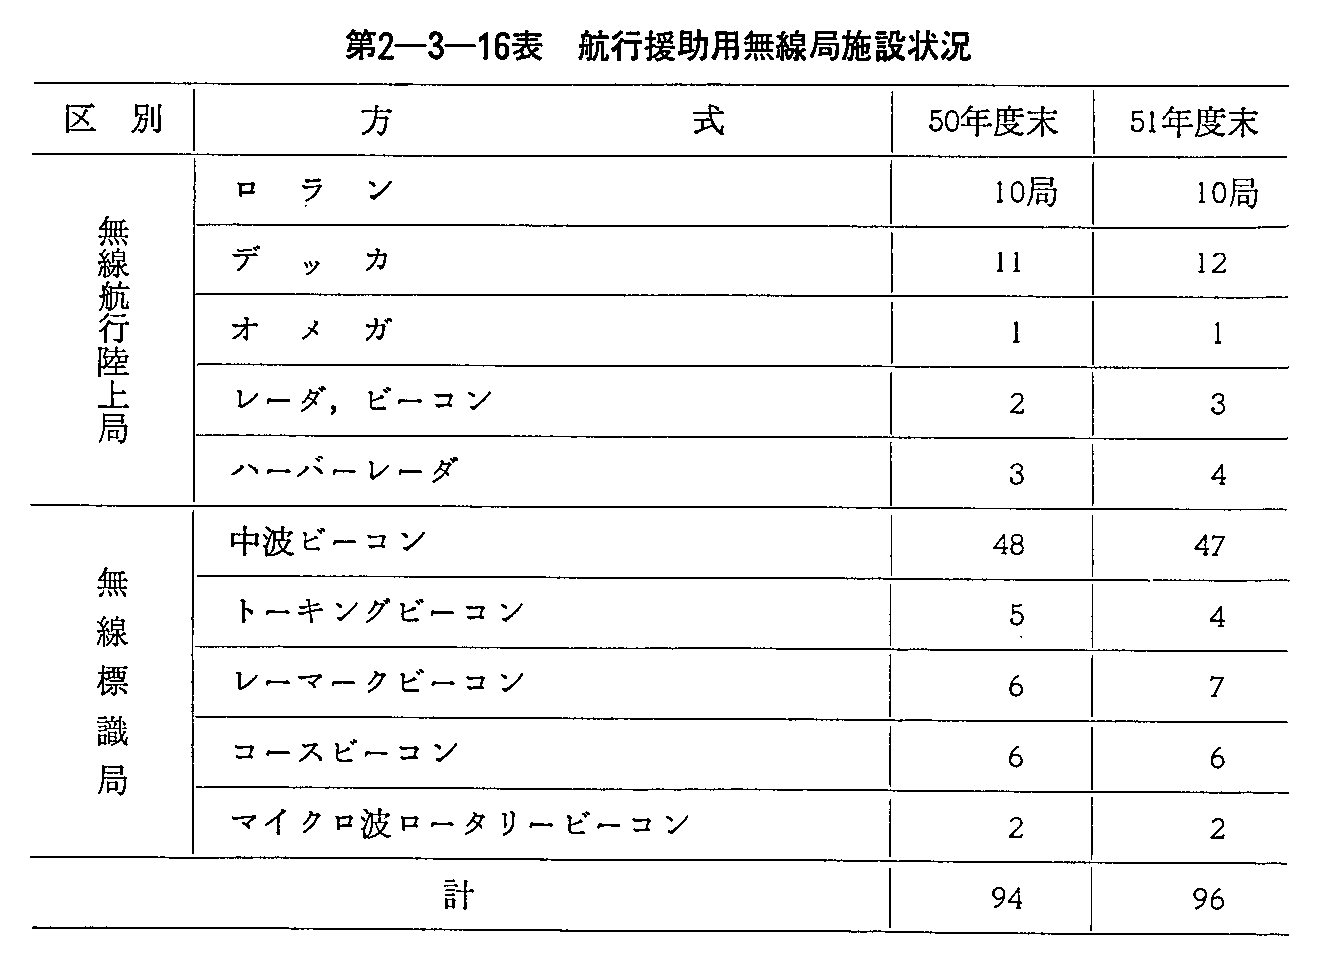 第2―3―16表　航行援助用無線局施設状況
区　別　方　式　50年度末　51年度末
無線航行陸上局
ロ　ラ　ン　10局　10局
デ　ッ　カ　11　12
オ　メ　ガ　1　1
レーダ，ビーコン　2　3
ハーバーレーダ　3　4
無線標識局
中波ビーコン　48　47
トーキングビーコン　5　4
レーマークビーコン　6　7
コースビーコン　6　6
マイクロ波ロータリービーコン　2　2
計　94　96